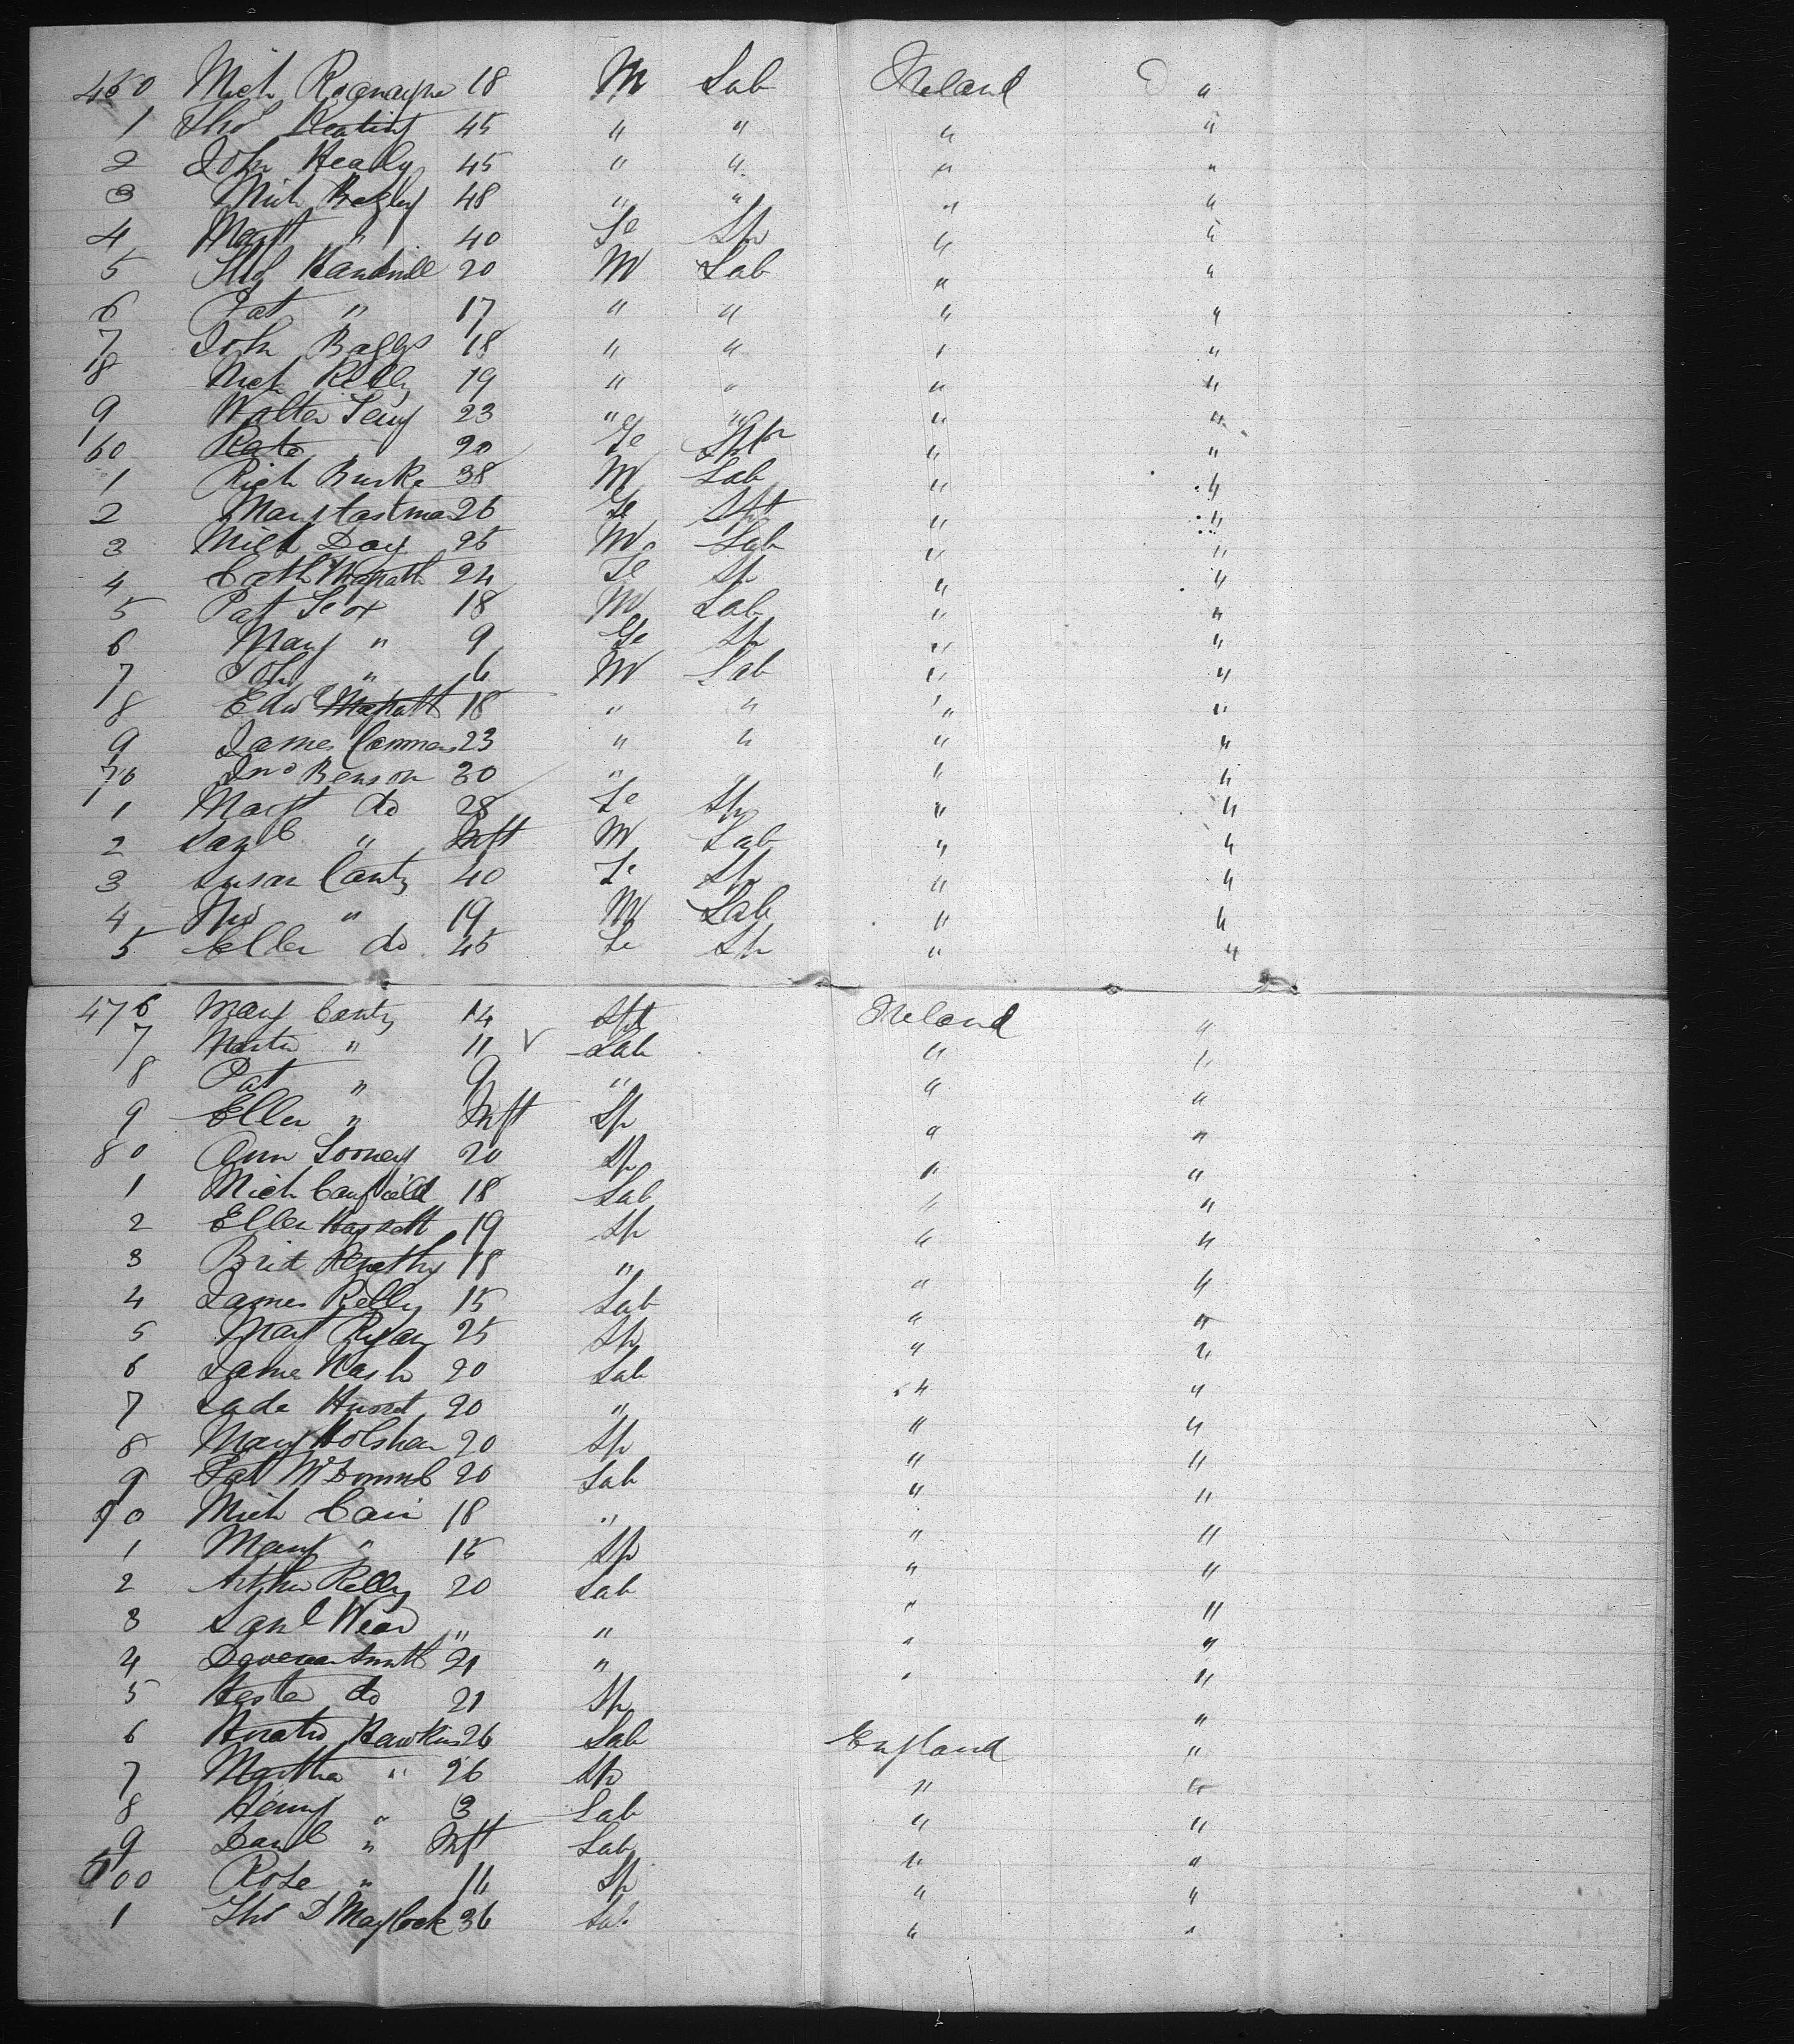 450 Mich 18 M Lab Ireland "
1 Tho^s Keating 45 " " " "
2 John Healy 45 " " " "
3 Mich Begley 48 " " " "
4 Marg^t " 40 Fe Sp " "
5 Tho^s 20 M Lab " "
6 Pat " 17 " " " "
7 John Baggs 18 " " " "
8 Mich Kelly 19 " " " "
9 Walter 23 " " " "
60 Kate 20 Fe Spr " "
1 Rich Burke 38 M Lab " "
2 Mary Eastman 26 Fe Spt " "
3 Mich Day 25 M Lab " "
4 Cath M^cGrath 24 Fe Sp " "
5 Pat 18 M Lab " "
6 Mary " 9 Fe Sp " "
7 John " 6 M Lab " "
8 Edw^d Magrath 18 " " " "
9 James Connors 23 " " " "
70 Jno Benson 30 " " " "
1 Marg^t do 28 Fe Sp " "
2 Sam^l " Inft M Lab " "
3 Susan Canty 40 Fe Sp " "
4 " 19 M Lab " "
5 Ellen do 45 Fe Sp " "
476 Mary Canty 14 Spt Ireland "
7 Martin " 11 Lab " "
8 Pat " 9 " " "
9 Ellen " Inft Sp " "
80 Ann 20 Sp " "
1 Mich Canfield 18 Lab " "
2 Ellen Hassett 19 Sp " "
3 Brid 18 " " "
4 James Kelly 15 Lab " "
5 Marg^t Ryan 25 Sp " "
6 James Nash 20 Lab " "
7 20 " " "
8 Mary 20 Sp " "
9 Pat 20 Lab " "
90 Mich Cain 18 " " "
1 Mary " 15 Sp " "
2 Arthur Kelly 20 Lab " "
3 Sam^l Wear " " " "
4 Smith 21 " " "
5 Hester do 21 Sp "
6 Horatio Hawkins 26 Lab England "
7 Martha " 26 Sp " "
8 Henry " 3 Lab " "
9 Dan^l " Inft Lab " "
500 Rose " 16 Sp " "
1 Tho^s D Maylock 36 Lab " "